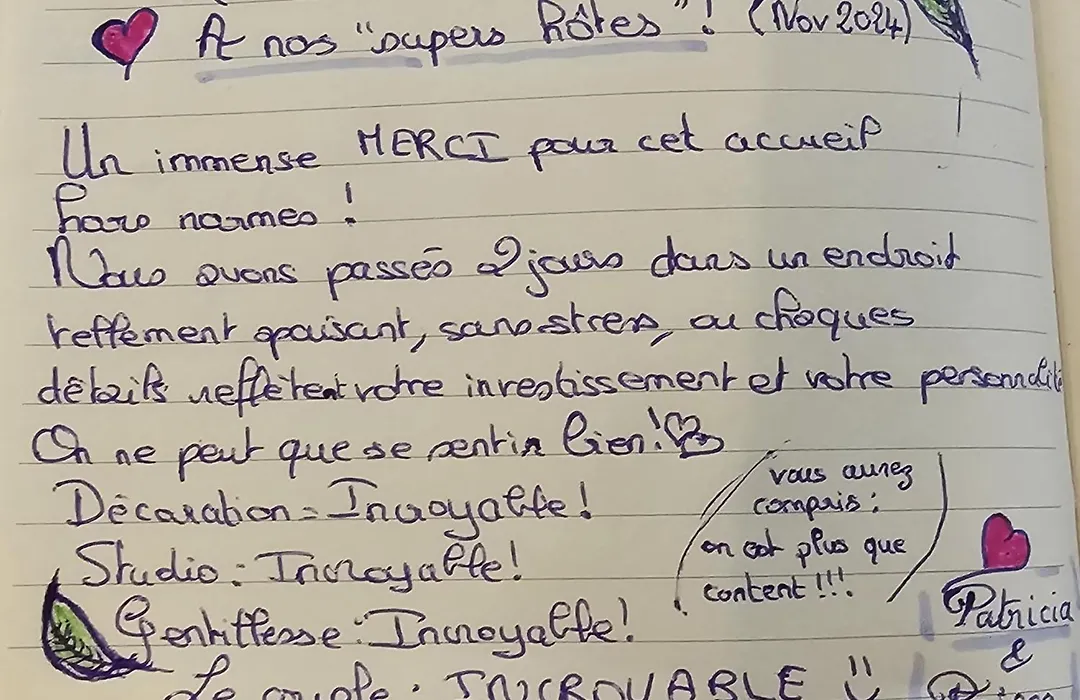 À nos "supers hôtes"! (Nov 2024)
Un immense MERCI pour cet accueil
hors normes !
Nous avons passés 2 jours dans un endroit
tellement apaisant, sans stress, ou chaques
détails reflètent votre investissement et votre personnalité
On ne peut que se sentir bien!
Décoration = Incroyable!
Studio : Incroyable!
Gentillesse : Incroyable!
Le couple : INCROYABLE
(vous aurez
compris :
on est plus que
content !!!)
Patricia
&